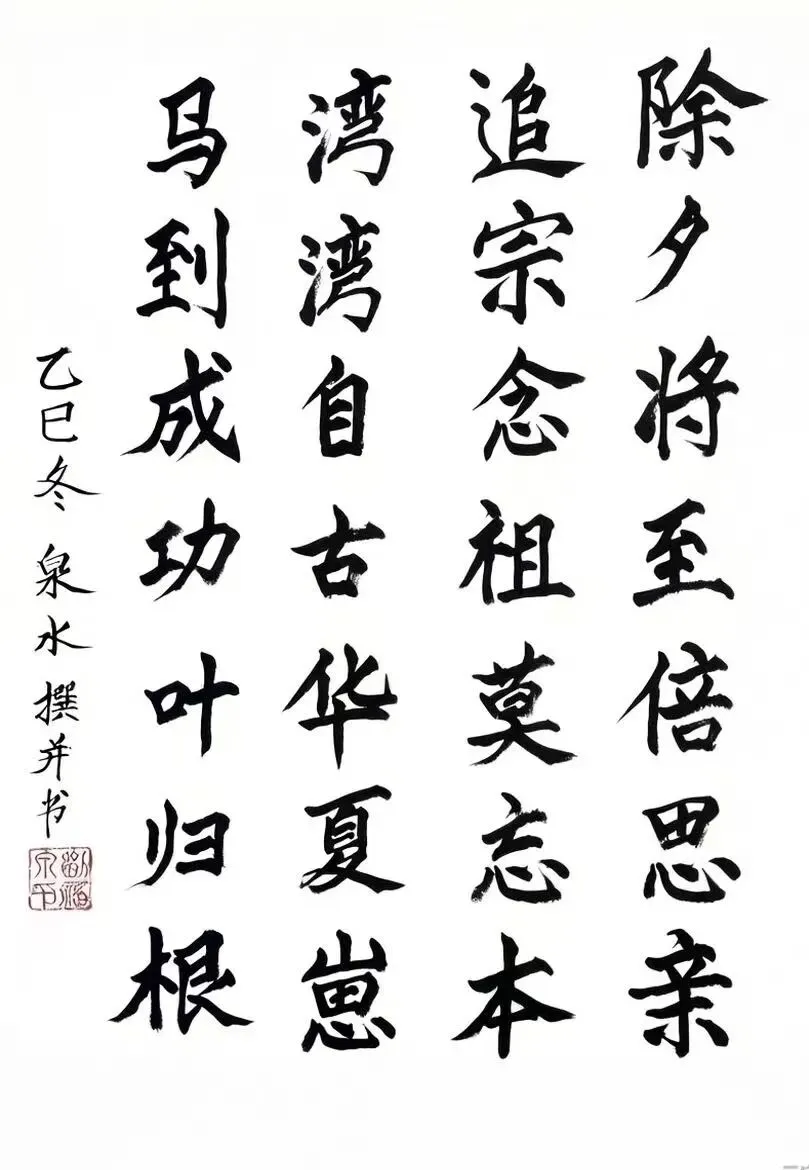 除夕将至倍思亲
追宗念祖莫忘本
湾湾自古华夏崽
马到成功叶归根
乙巳冬 泉水 撰并书